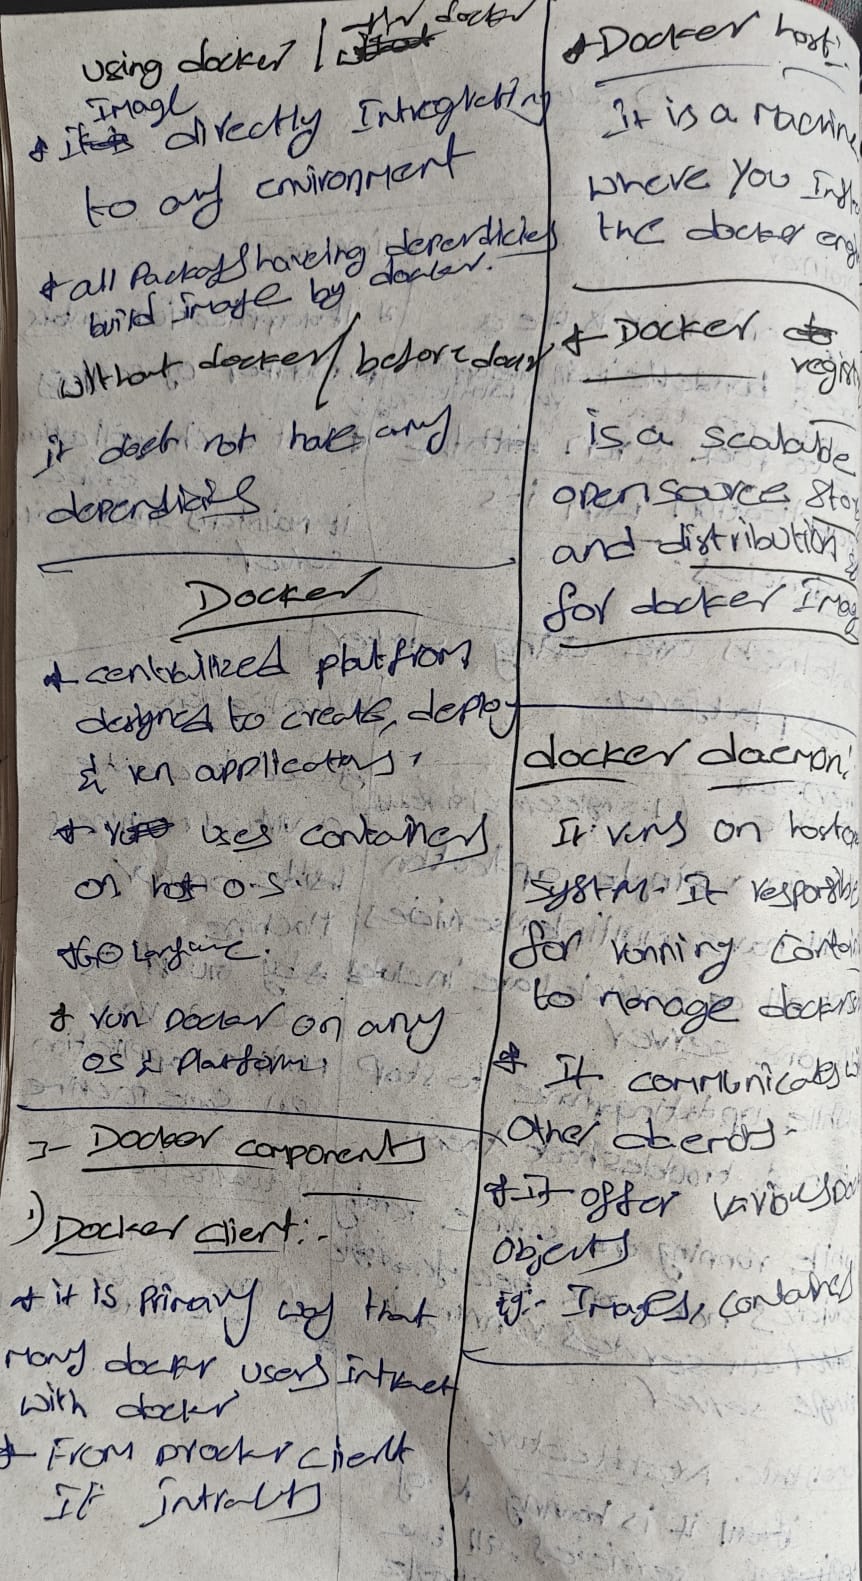 using docker / after docker
Image
* directly Intregreting
to any environment
* all Packages haveing dependicies
build image by docker.
without docker / before docker
it does not have any
dependicies
Docker
* centralized platfrom
designed to create, deploy
& run applications,
* uses containers
on host O.S.
* GO language.
* run Docker on any
OS & Platform,
Docker components
1) Docker client:-
* it is Primary way that
many docker users intract
with docker
* From docker client
It intracts
* Docker host:
It is a Machine
where you Inst
the docker eng
* Docker
regis
is a scalable
open source sto
and distribution
for docker Imag
docker daemon:
It runs on host
system. It responsible
for running Contai
to manage dockers
* It communicates w
Other
* It offer various Do
Objects
eg:- Images, containers